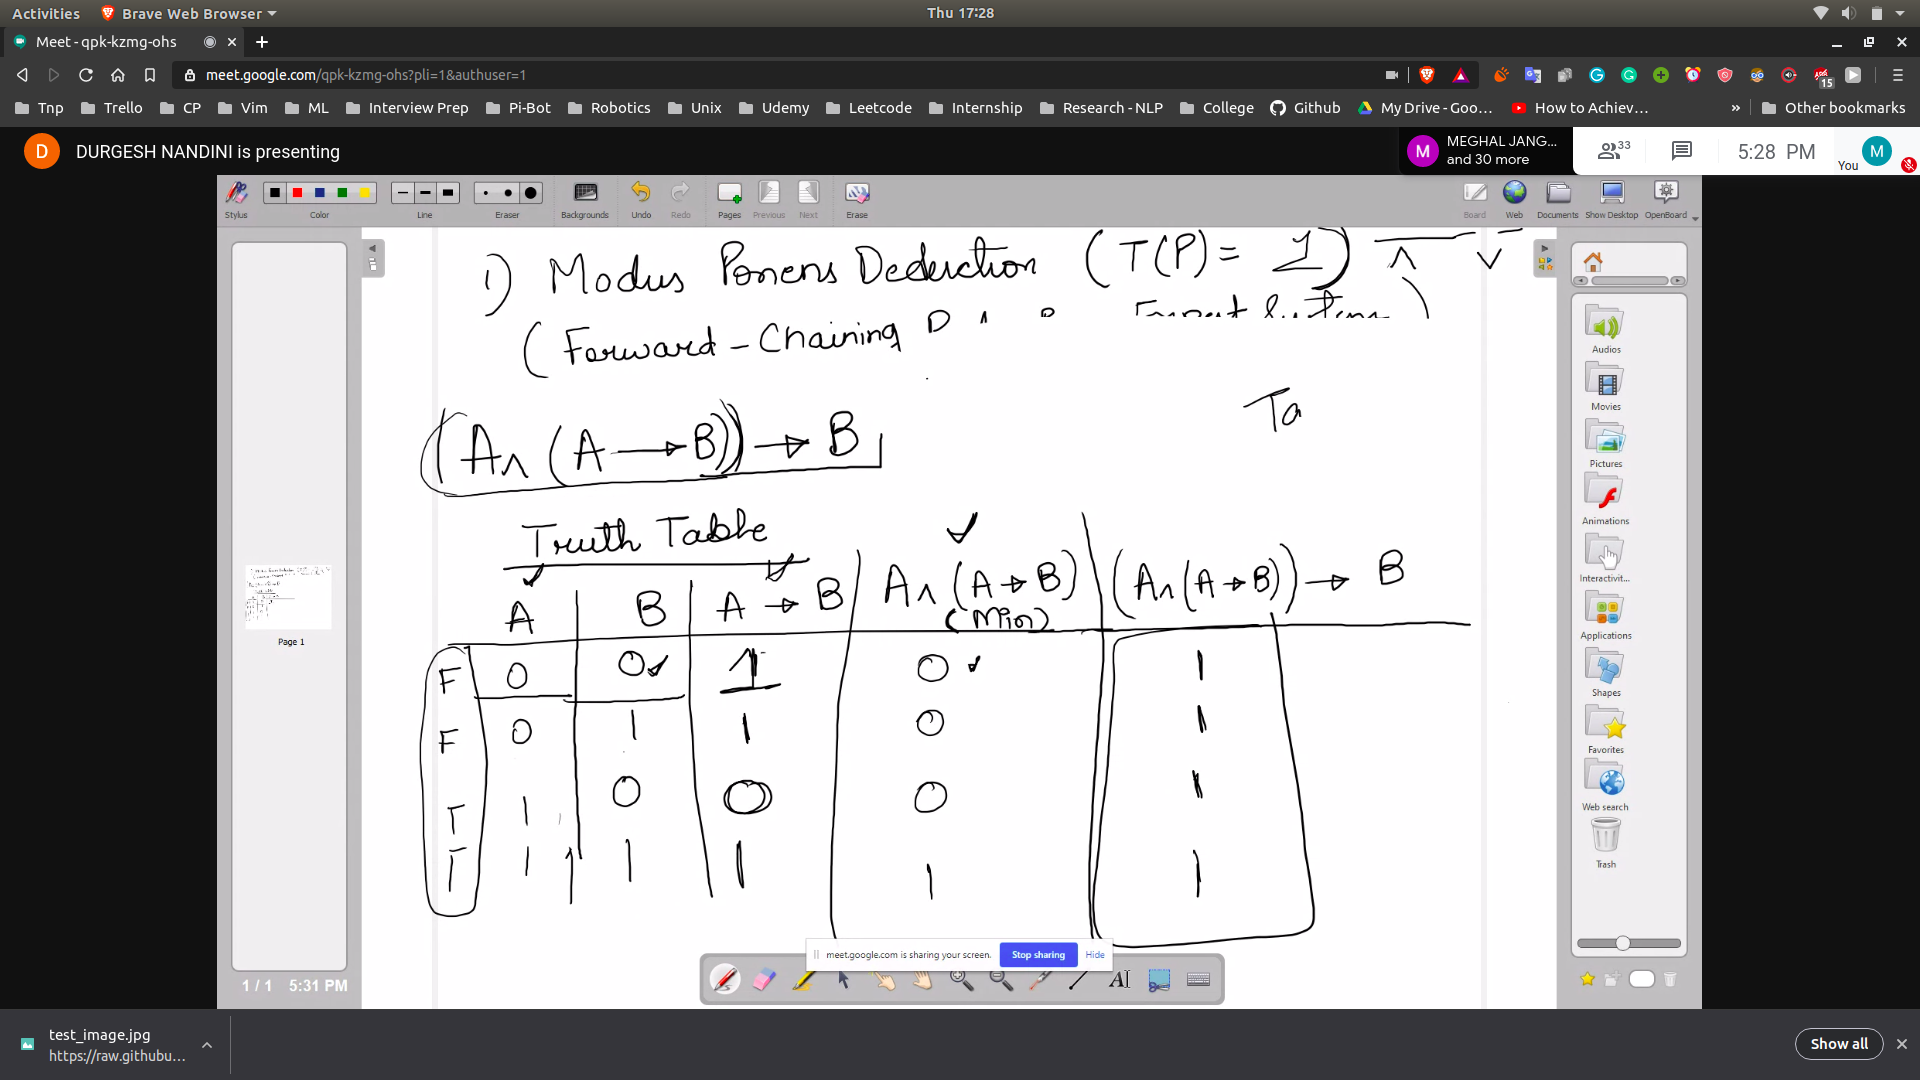 Activities Brave Web Browser Thu 17:28
Meet - qpk-kzmg-ohs
meet.google.com/qpk-kzmg-ohs?pli=1&authuser=1 15
Tnp Trello CP Vim ML Interview Prep Pi-Bot Robotics Unix Udemy Leetcode Internship Research - NLP College Github My Drive - Goo... How to Achiev... » Other bookmarks
D DURGESH NANDINI is presenting
M MEGHAL JANG...
and 30 more
33 5:28 PM You M
Stylus Color Line Eraser Backgrounds Undo Redo Pages Previous Next Erase Board Web Documents Show Desktop OpenBoard
1) Modus Ponens Deduction (T(P) = 1) ∧ ∨
(Forward - Chaining
(A ∧ (A → B)) → B
Ta
Truth Table
A B A → B A ∧ (A → B) (A ∧ (A → B)) → B
(Min)
F 0 0 1 0 1
F 0 1 1 0 1
T 1 0 0 0 1
T 1 1 1 1 1
Page 1
1 / 1 5:31 PM
Audios
Movies
Pictures
Animations
Interactivit...
Applications
Shapes
Favorites
Web search
Trash
meet.google.com is sharing your screen. Stop sharing Hide
test_image.jpg
https://raw.githubu...
Show all